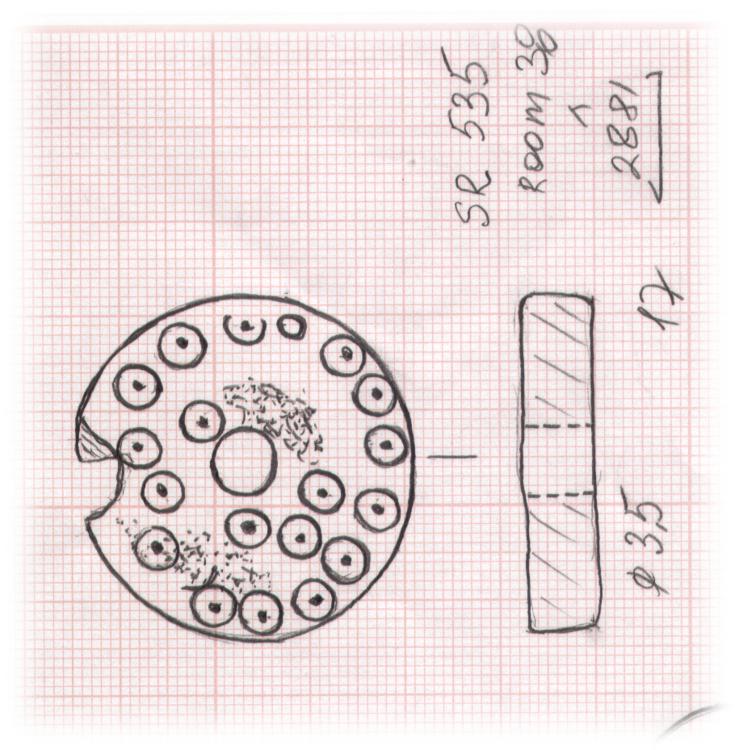 SR 535
ROOM 38
2881
17
φ 3,5